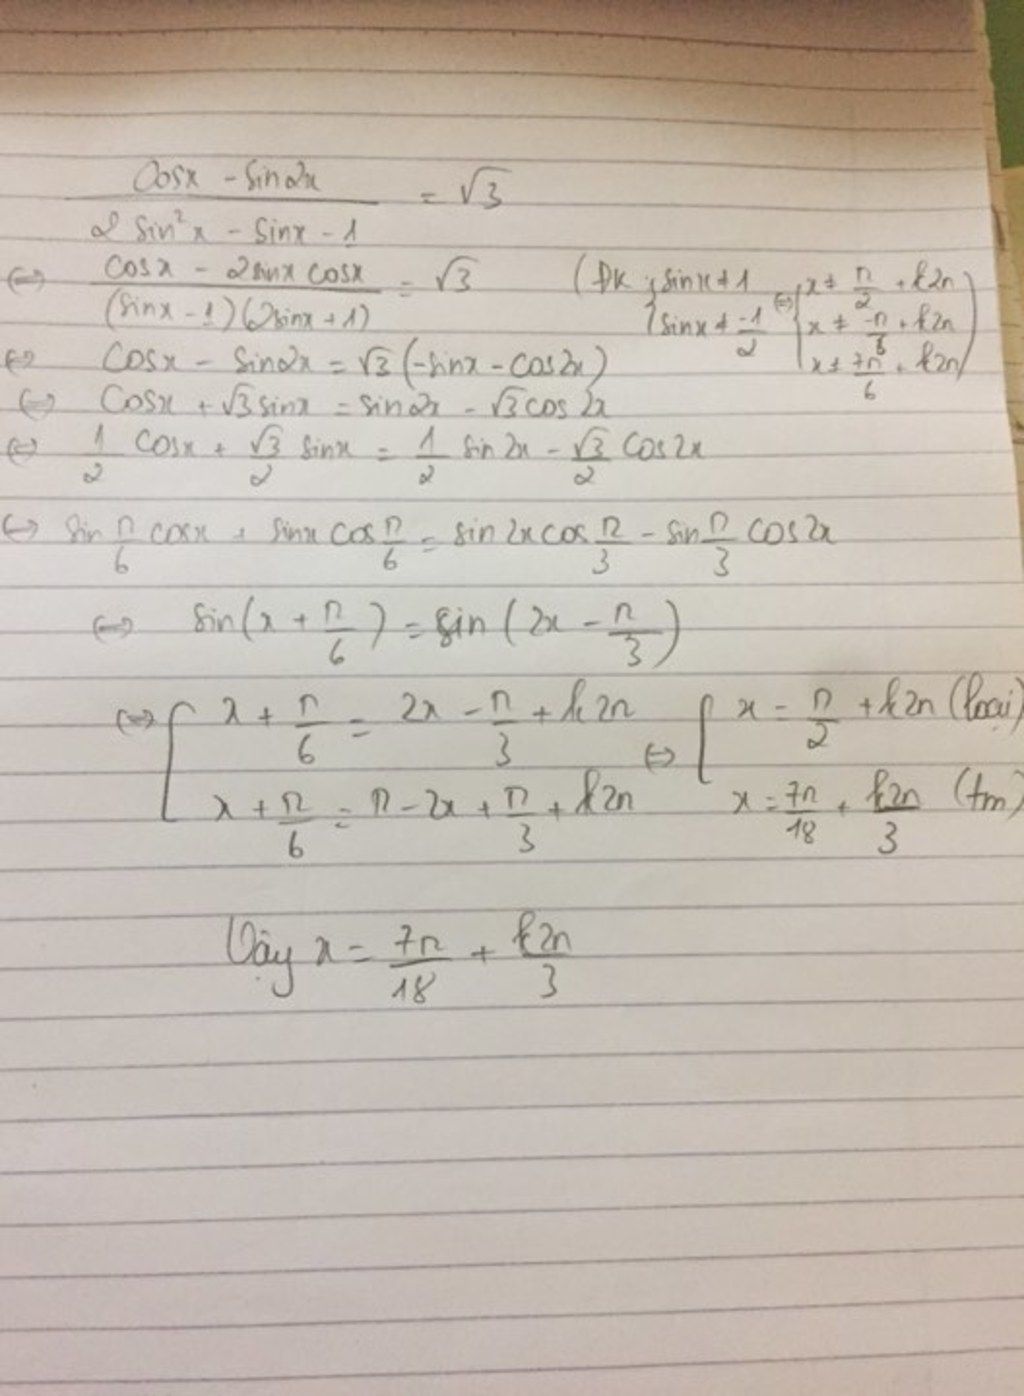 (cosx - sin2x) / (2sin²x - sinx - 1) = √3
⇔ (cosx - 2sinx cosx) / ((sinx - 1)(2sinx + 1)) = √3 (ĐK { sinx ≠ 1 ; sinx ≠ -1/2 ⇔ { x ≠ π/2 + k2π ; x ≠ -π/6 + k2π ; x ≠ 7π/6 + k2π)
⇔ cosx - sin2x = √3(-sinx - cos2x)
⇔ cosx + √3 sinx = sin2x - √3 cos2x
⇔ 1/2 cosx + √3/2 sinx = 1/2 sin2x - √3/2 cos2x
⇔ sin π/6 cosx + sinx cos π/6 = sin2x cos π/3 - sin π/3 cos2x
⇔ sin(x + π/6) = sin(2x - π/3)
⇔ [ x + π/6 = 2x - π/3 + k2π ⇔ [ x = π/2 + k2π (loại)
x + π/6 = π - 2x + π/3 + k2π x = 7π/18 + k2π/3 (tm)
Vậy x = 7π/18 + k2π/3